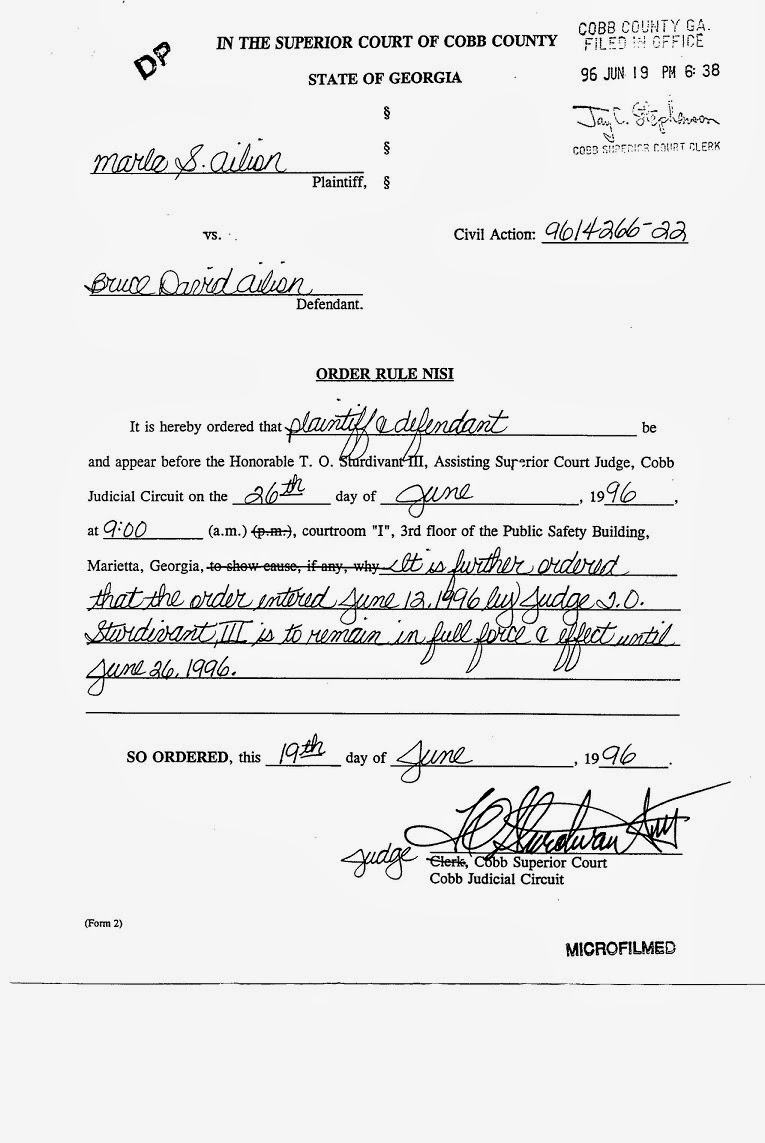 DP
IN THE SUPERIOR COURT OF COBB COUNTY
COBB COUNTY GA.
FILED IN OFFICE
STATE OF GEORGIA
96 JUN 19 PM 6:38
§
Jay C. Stephenson
§
COBB SUPERIOR COURT CLERK
Marla S. Ailion
Plaintiff, §
vs.
Civil Action: 9614266-22
Bruce David Ailion
Defendant.
ORDER RULE NISI
It is hereby ordered that plaintiff & defendant be
and appear before the Honorable T. O. Sturdivant III, Assisting Superior Court Judge, Cobb
Judicial Circuit on the 26th day of June, 1996,
at 9:00 (a.m.) (p.m.), courtroom "I", 3rd floor of the Public Safety Building,
Marietta, Georgia, to show cause, if any, why It is further ordered
that the order entered June 12, 1996 by Judge T.O.
Sturdivant, III is to remain in full force & effect until
June 26, 1996.
SO ORDERED, this 19th day of June, 1996.
Judge Clerk, Cobb Superior Court
Cobb Judicial Circuit
(Form 2)
MICROFILMED